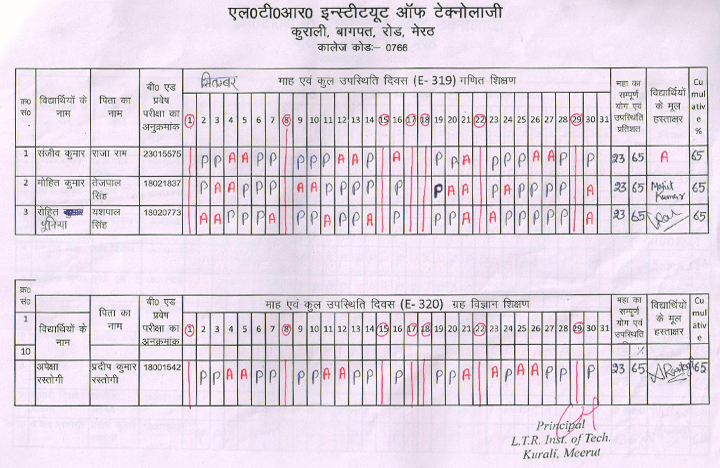 एल0टी0आर0 इन्स्टीटयूट ऑफ टेक्नोलाजी
कुराली, बागपत, रोड, मेरठ
कालेज कोडः- 0766
क्र0 सं0 विद्यार्थियों के नाम पिता का नाम बी0 एड प्रवेष परीक्षा का अनुक्रमांक सितम्बर माह एवं कुल उपस्थिति दिवस (E- 319) गणित शिक्षण महा का सम्पूर्ण योग एवं उपस्थिति प्रतिशत विद्यार्थियों के मूल हस्ताक्षर Cu mul ative %
1 2 3 4 5 6 7 8 9 10 11 12 13 14 15 16 17 18 19 20 21 22 23 24 25 26 27 28 29 30 31
1 संजीव कुमार राजा राम 23015575 P P A A P P P P P A A P A P P A P P P A A P P 23 65 A 65
2 मोहित कुमार तेजपाल सिंह 18021837 P P A P P P A A P P P P P P A A A P P P P P A 23 65 Mohit Kumar 65
3 रोहित पुनिया यशपाल सिंह 18020773 A A P P P A P P A P P A P P P A A P P P P P A 23 65 65
क्र0 सं0 विद्यार्थियों के नाम पिता का नाम बी0 एड प्रवेष परीक्षा का अनुक्रमांक माह एवं कुल उपस्थिति दिवस (E- 320) ग्रह विज्ञान शिक्षण महा का सम्पूर्ण योग एवं उपस्थिति % विद्यार्थियों के मूल हस्ताक्षर Cu mul ativ e
1 2 3 4 5 6 7 8 9 10 11 12 13 14 15 16 17 18 19 20 21 22 23 24 25 26 27 28 29 30 31
1
10
अपेक्षा रस्तोगी प्रदीप कुमार रस्तोगी 18001542 P P A A P P P P A A P P P P P A A P A A P P P 23 65 65
Principal
L.T.R. Inst. of Tech.
Kurali, Meerut